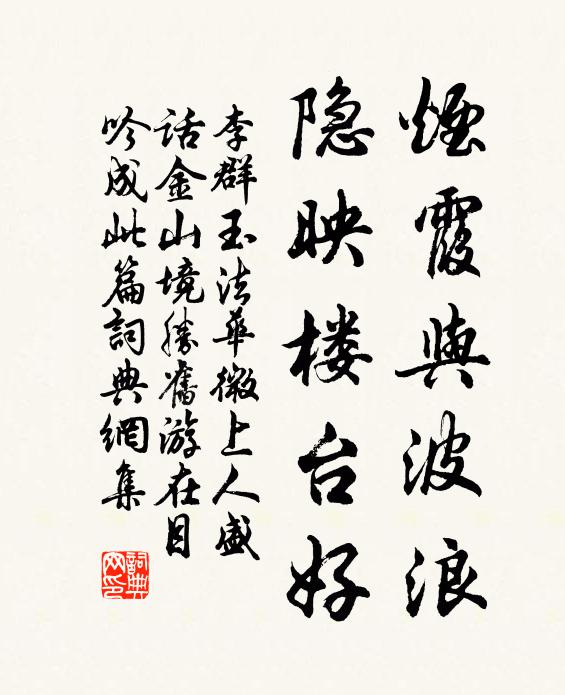 煙霞與波浪
隐映楼台好
李群玉法華微上人盛
话金山境勝舊游在目
吟成此篇詞典網集
詞典
网印